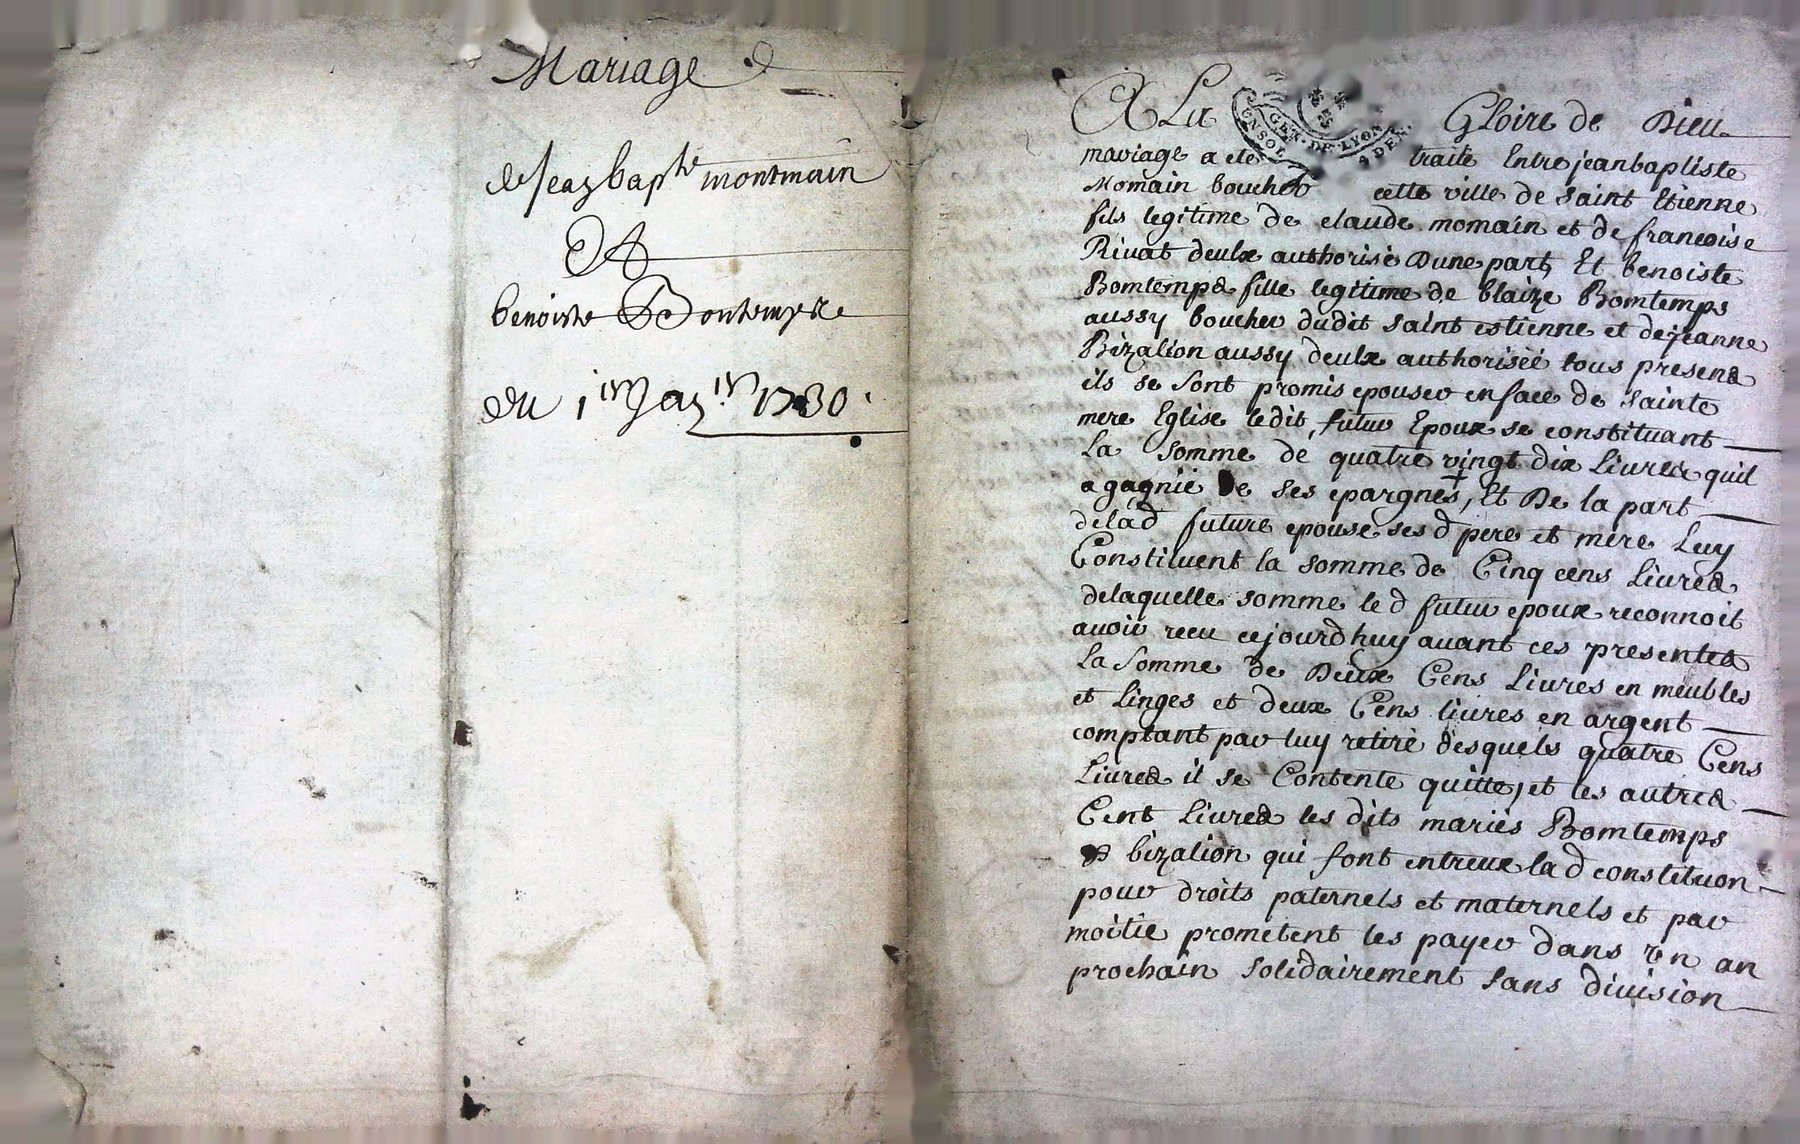 Mariage
de Jean bapte montmain
Et
benoiste Bontemps
du 1er Janer 1730.
A La Gloire de Dieu
GEN. DE LYON
mariage a ete traité Entre jean baptiste
Momain boucher cette ville de saint Etienne
fils legitime de claude momain et de francoise
Rivat deulx authorisé Dune part, Et benoiste
Bomtemps fille legitime de blaize Bomtemps
aussy boucher dudit saint estienne et de jeanne
Bizalion aussy deulx authoriséé tous presens
ils se sont promis epouser en face de sainte
mere Eglise ledit futur Epoux se constituant
La somme de quatre vingt dix Livres quil
a gagnié De ses epargnes, Et De la part
delad future epouse ses d pere et mere Luy
Constituent la somme de Cinq cens Livres
delaquelle somme le d futur epoux reconnoit
avoir receu cejourdhuy avant ces presentes
La somme de Deux Cens Livres en meubles
et Linges et deux Cens livres en argent
comptant par luy retiré desquels quatre Cens
Livres il se Contente quitte, et les autres
Cent Livres les dits mariés Bomtemps
bizalion qui font entreux la d constituon
pour droits paternels et maternels et par
moitie prometent les payer dans Un an
prochain solidairement sans division